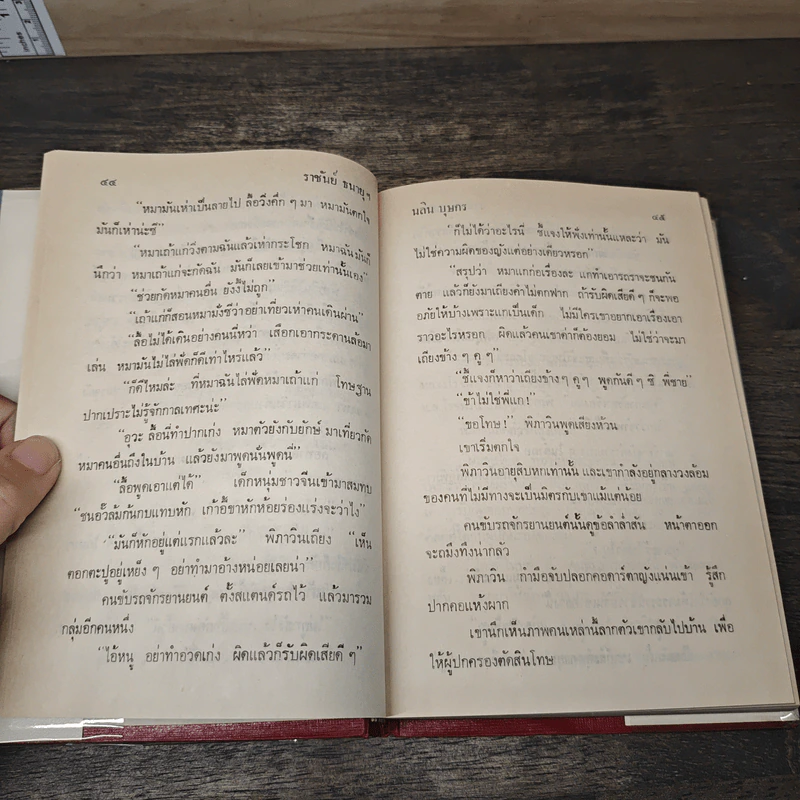 ๔๔
ราชันย์ ธนายุฯ
"หมามันเห่าเป็นลายไป ลื้อวิ่งคึก ๆ มา หมามันตกใจ
มันก็เห่าน่ะซี"
"หมาเถ้าแก่วิ่งตามฉันแล้วเห่ากระโชก หมาฉันมันก็
นึกว่า หมาเถ้าแก่จะกัดฉัน มันก็เลยเข้ามาช่วยเท่านั้นเอง"
"ช่วยกัดหมาคนอื่น ยังงี้ไม่ถูก"
"เถ้าแก่ก็สอนหมามั่งซีว่าอย่าเที่ยวเห่าคนเดินผ่าน"
"ลื้อไม่ได้เดินอย่างคนนี่หว่า เสือกเอากระดานล้อมา
เล่น หมามันไม่ไล่ฟัดก็ดีเท่าไหร่แล้ว"
"ก็ดีไหมล่ะ ที่หมาฉันไล่ฟัดหมาเถ้าแก่ โทษฐาน
ปากเปราะไม่รู้จักกาลเทศะน่ะ"
"อุวะ ลื้อนี่ทำปากเก่ง หมาตัวยังกับยักษ์ มาเที่ยวกัด
หมาคนอื่นถึงในบ้าน แล้วยังมาพูดนั่นพูดนี่"
"ลื้อพูดเอาแต่ได้" เด็กหนุ่มชาวจีนเข้ามาสมทบ
"ชนอั๊วล้มก้นกบแทบหัก เก้าอี้ขาหักห้อยร่องแร่งจะว่าไง"
"มันก็หักอยู่แต่แรกแล้วละ" พิภาวินเถียง "เห็น
ตอกตะปูอยู่เหยิง ๆ อย่าทำมาอ้างหน่อยเลยน่า"
คนขับรถจักรยานยนต์ ตั้งสแตนด์รถไว้ แล้วมารวม
กลุ่มอีกคนหนึ่ง
"ไอ้หนู อย่าทำอวดเก่ง ผิดแล้วก็รับผิดเสียดี ๆ"
นลิน บุษกร
๔๕
"ก็ไม่ได้ว่าอะไรนี่ ชี้แจงให้ฟังเท่านั้นแหละว่า มัน
ไม่ใช่ความผิดของญังแต่อย่างเดียวหรอก"
"สรุปว่า หมาแกก่อเรื่องละ แกทำเอารถราจะชนกัน
ตาย แล้วก็ยังมาเถียงคำไม่ตกฟาก ถ้ารับผิดเสียดี ๆ ก็จะพอ
อภัยให้บ้างเพราะแกเป็นเด็ก ไม่มีใครเขาอยากเอาเรื่องเอา
ราวอะไรหรอก ผิดแล้วคนเขาด่าก็ต้องยอม ไม่ใช่ว่าจะมา
เถียงข้าง ๆ คู ๆ"
"ชี้แจงก็หาว่าเถียงข้าง ๆ คู ๆ พูดกันดี ๆ ซิ พี่ชาย"
"ข้าไม่ใช่พี่แก!"
"ขอโทษ!" พิภาวินพูดเสียงห้วน
เขาเริ่มตกใจ
พิภาวินอายุสิบหกเท่านั้น และเขากำลังอยู่กลางวงล้อม
ของคนที่ไม่มีทางจะเป็นมิตรกับเขาแม้แต่น้อย
คนขับรถจักรยานยนต์นั้นดูข้อลำล่ำสัน หน้าตาออก
จะถมึงทึงน่ากลัว
พิภาวิน กำมือจับปลอกคอดาร์ตาญังแน่นเข้า รู้สึก
ปากคอแห้งผาก
เขานึกเห็นภาพคนเหล่านี้ลากตัวเขากลับไปบ้าน เพื่อ
ให้ผู้ปกครองตัดสินโทษ